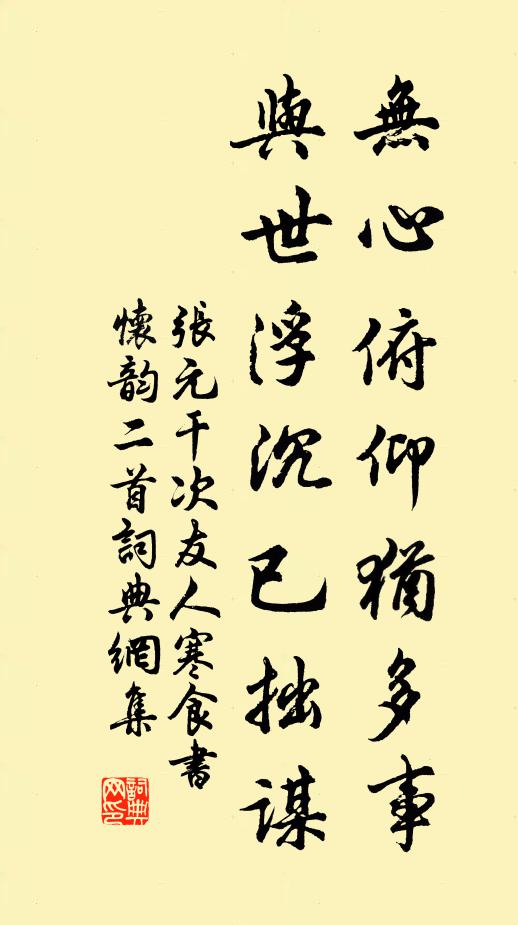 無心俯仰猶多事
與世浮沉已拙謀
張元干次友人寒食書
懷韵二首詞典網集
詞典
网印